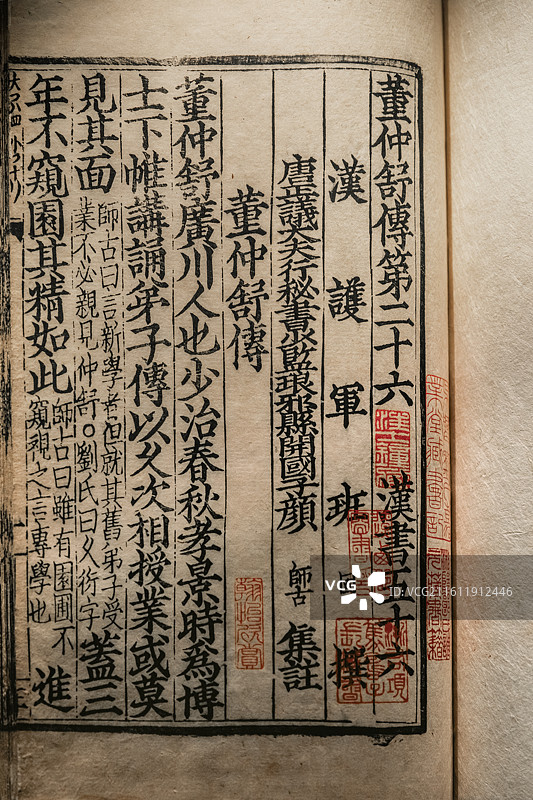 董仲舒傳第二十六　漢書五十六
漢護軍班固撰
唐正議大夫行秘書少監琅邪縣開國子顏師古集註
董仲舒傳
董仲舒廣川人也少治春秋孝景時爲博
士下帷講誦弟子傳以久次相授業或莫
見其面師古曰言新學者但就其舊弟子受業不必親見仲舒○劉氏曰久衍字蓋三
年不窺園其精如此師古曰雖有園圃不窺視之言專學也進
VCG
VCG211611912446